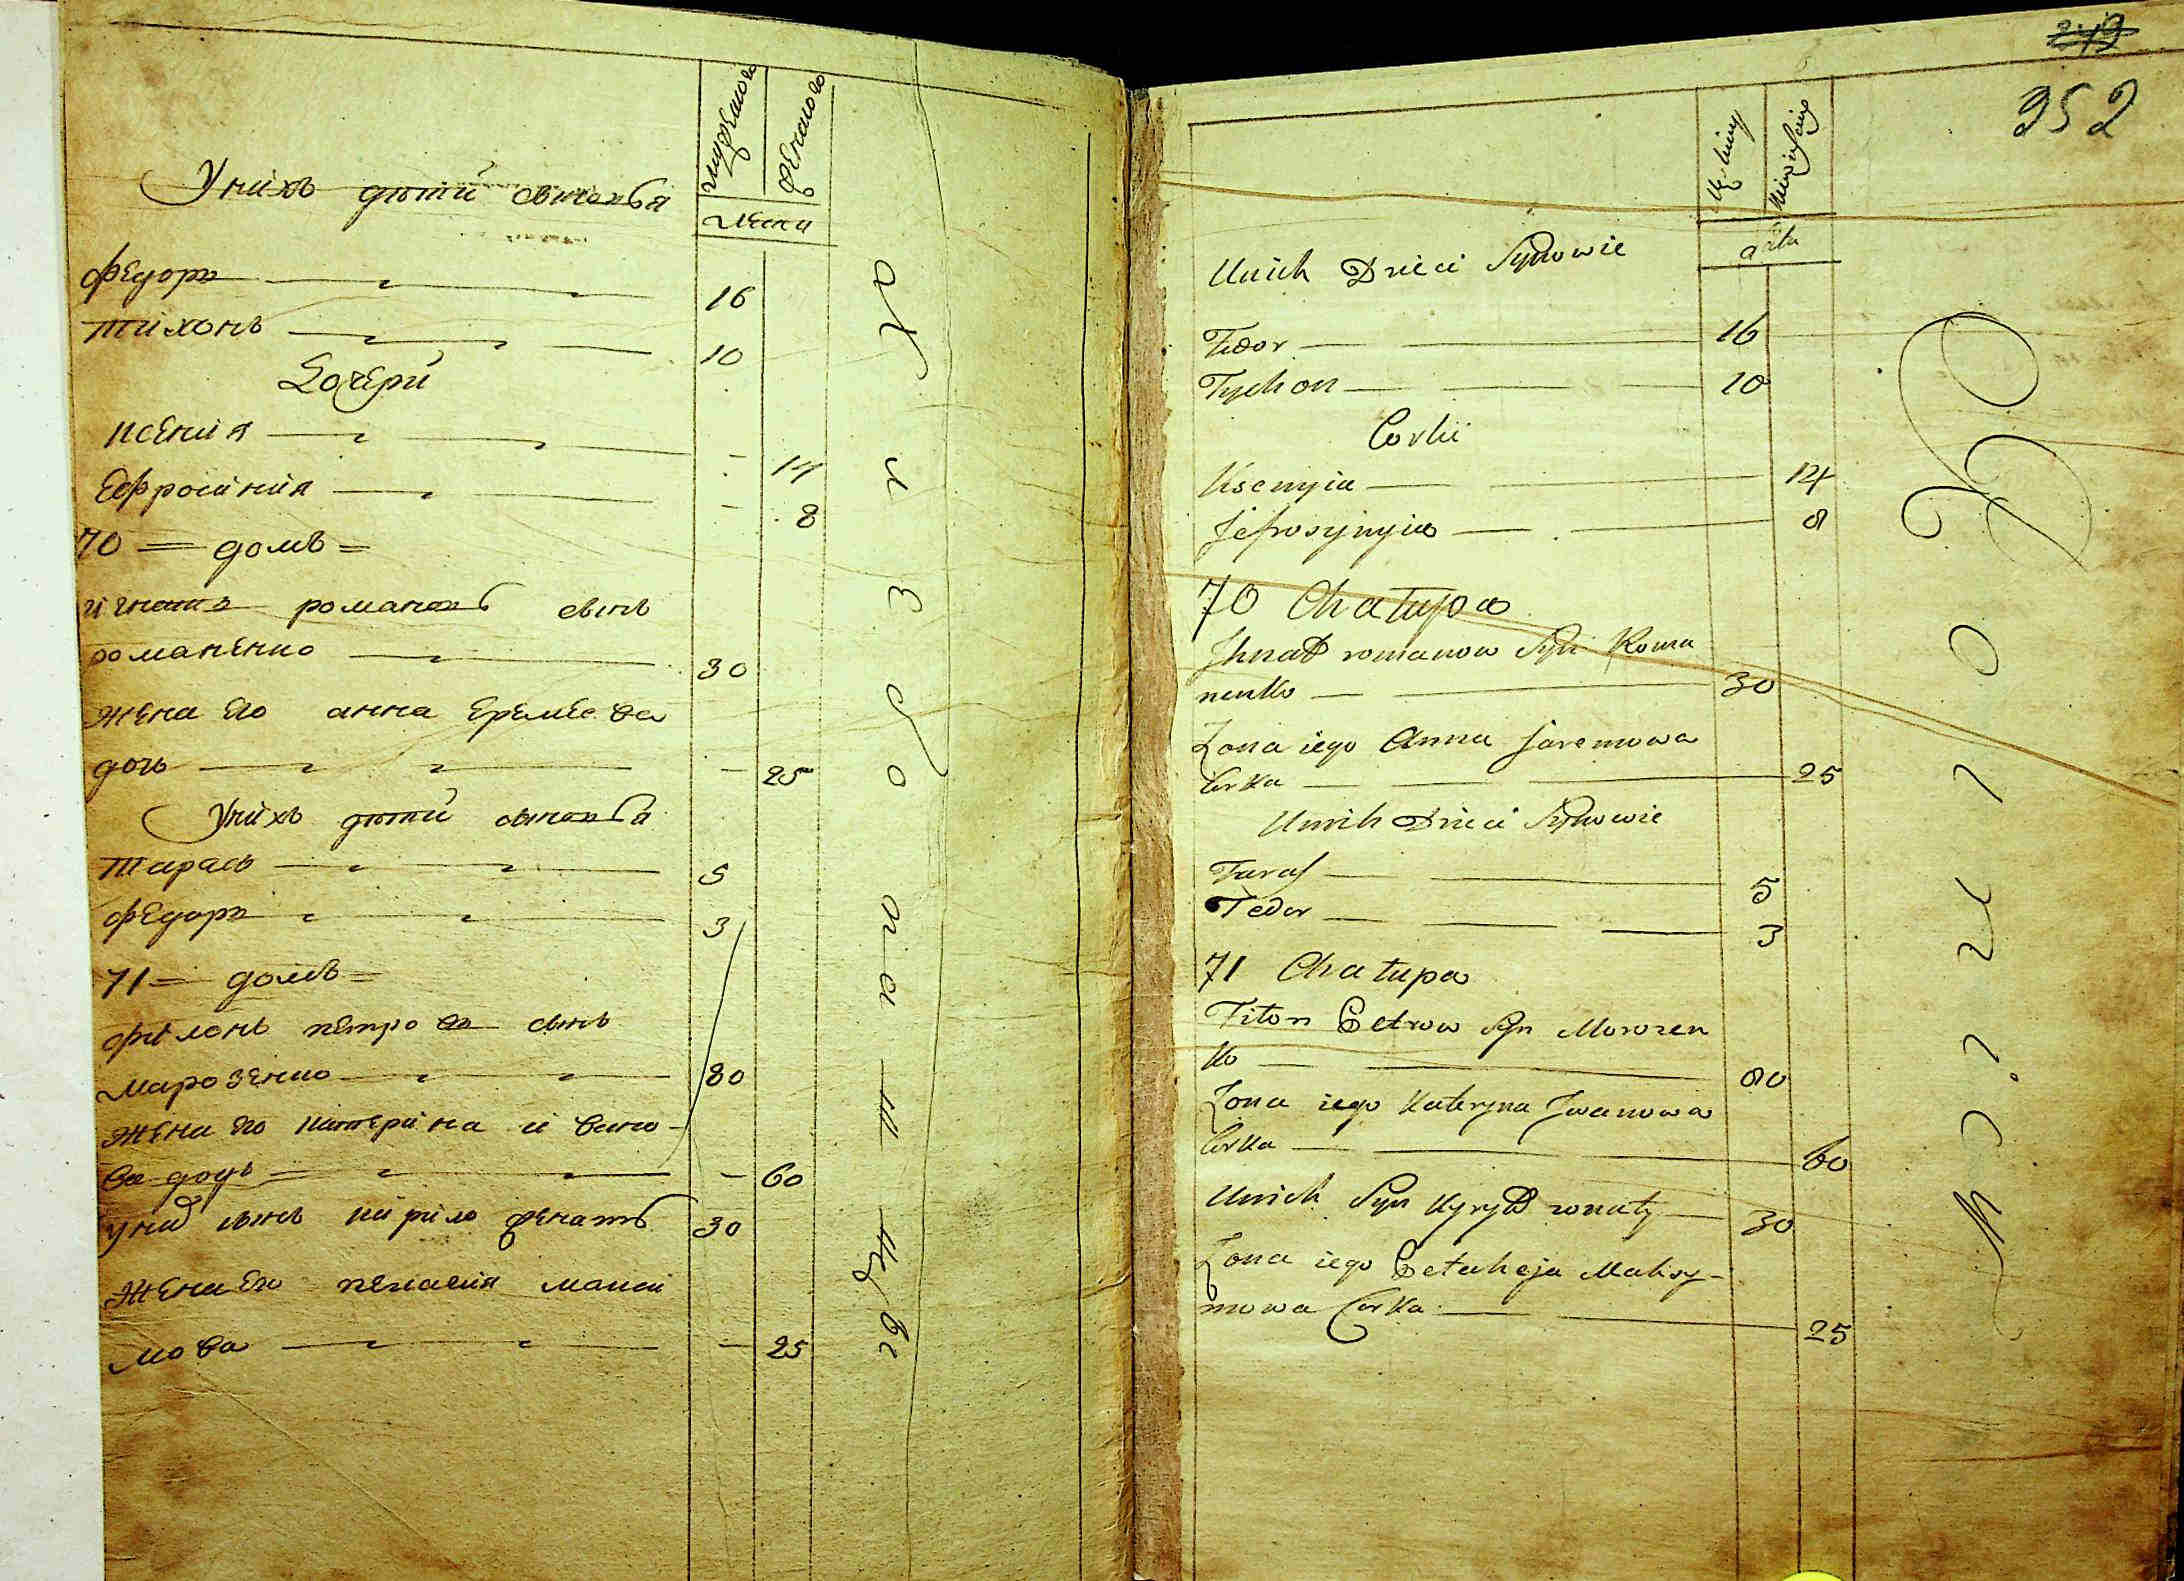 мужеского
женского
лета
Унихъ дѣти сыновья
Федоръ 16
Тихонъ 10
Дочери
ксения - 14
Ефросиния - 8
70 = домъ =
игнатъ романовъ сынъ
романенко 30
жена его анна Еремеева
дочь - 25
Унихъ дѣти сыновья
Тарасъ 5
Федоръ 3
71 = домъ =
филонъ петровъ сынъ
марозенко 80
жена его катерина ивано-
ва дочь - 60
унихъ сынъ кирило женатъ 30
жена его пелагия макси
мова - 25
249
352
lita
Unich Dzieci Synowie
Fedor 16
Tychon 10
Corki
Ksenyia 14
Jefrosynyia 8
70 Chatupa
Jhnat romanow Syn Roma
nenko 30
Zona iego Anna Jaremowa
Corka 25
Unich Dzieci Synowie
Taras 5
Fedor 3
71 Chatupa
Filon Petrow Syn Morozen
ko 80
Zona iego Kateryna Jwanowa
Corka 60
Unich Syn Kyryl zonaty 30
Zona iego Pelaheja Maksy-
mowa Corka 25